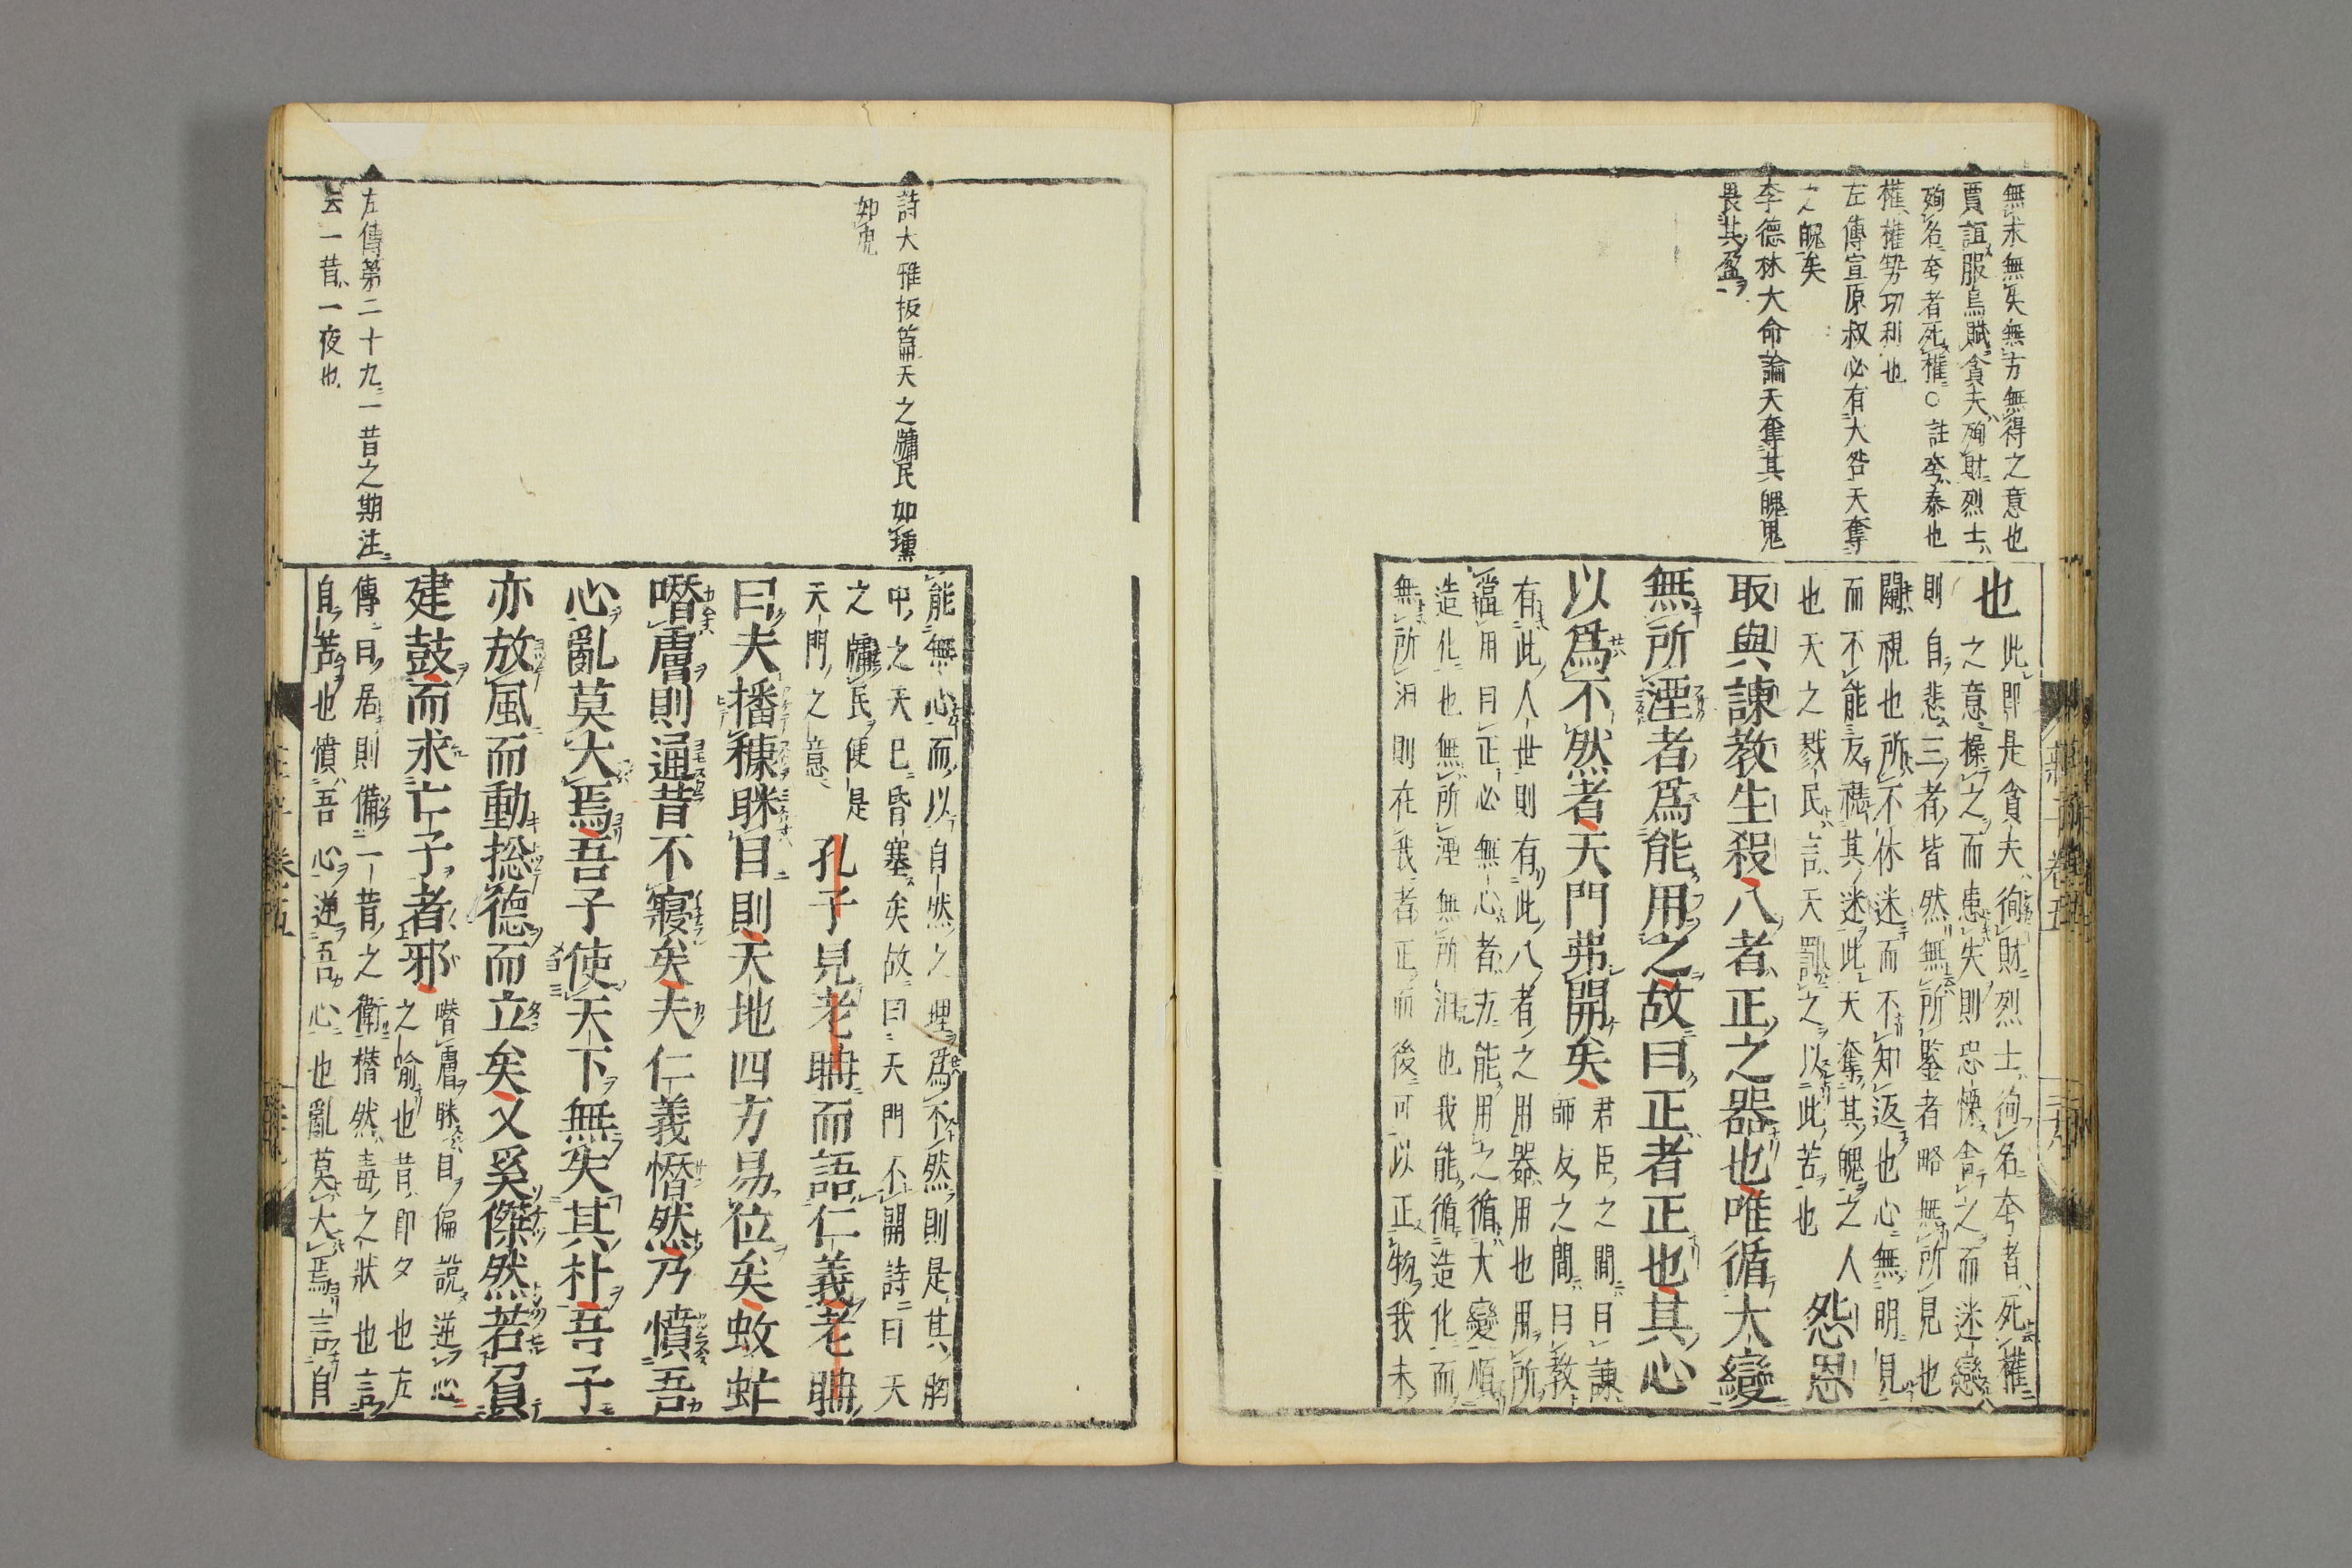 無末無矣無方無得之意也
賈誼服鳥賦貪夫殉財烈士
殉名夸者死權○註夸泰也
權權勢功利也
左傳宣原叔必有大咎天奪
之魄矣
李德林大命論天奪其魄鬼
畏其盈
也
此即是貪夫徇財烈士徇名夸者死權
之意操之而患失則恐慄舍之而迷戀
則自悲三者皆然無所鑒者略無所見也
闚視也所不休迷而不知返也心無明見
而不能反視其迷此天奪其魄之人
也天之戮民言天罰之以此苦也
怨恩
取與諫教生殺八者正之器也唯循大變
無所湮者爲能用之故曰正者正也其心
以爲不然者天門弗開矣
君臣之間曰諫
師友之間曰教
有此人世則有此八者之用器用也用所
當用曰正必無心者方能用之循大變順
造化也無所湮無所汨也我能循造化而
無所汨則在我者正而後可以正物我未
詩大雅板篇天之牖民如壎
如箎
左傳第二十九一昔之期注
云一昔一夜也
能無心而以自然之理爲不然則是其胸
中之天已昏塞矣故曰天門不開詩曰天
之牖民便是
天門之意
孔子見老聃而語仁義老聃
曰夫播穅眯目則天地四方易位矣蚊虻
噆膚則通昔不寢矣夫仁義憯然乃憤吾
心亂莫大焉吾子使天下無失其朴吾子
亦放風而動捴德而立矣又奚傑然若負
建鼓而求亡子者邪
噆膚眯目偏說逆心
之喻也昔即夕也左
傳曰居則備一昔之衛憯然毒之狀也言
自苦也憤吾心逆吾心也亂莫大焉言自